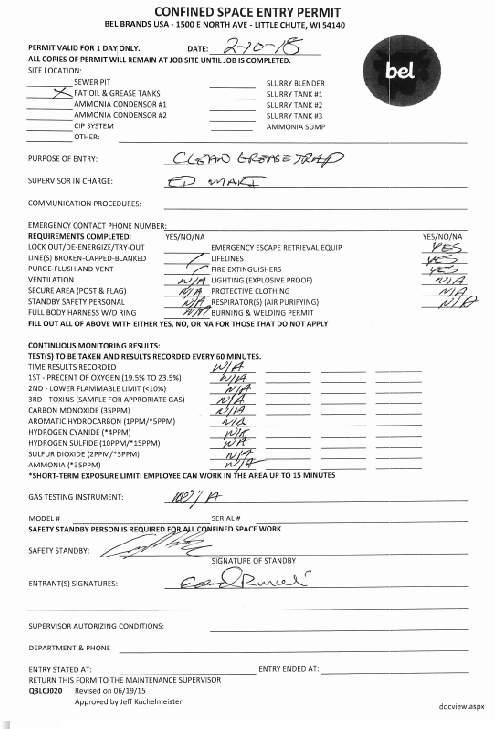 CONFINED SPACE ENTRY PERMIT
BEL BRANDS USA - 1500 E NORTH AVE - LITTLE CHUTE, WI 54140
PERMIT VALID FOR 1 DAY ONLY. DATE: 2-10-18
ALL COPIES OF PERMIT WILL REMAIN AT JOB SITE UNTIL JOB IS COMPLETED.
bel
SITE LOCATION:
SEWER PIT SLURRY BLENDER
X FAT OIL & GREASE TANKS SLURRY TANK #1
AMMONIA CONDENSOR #1 SLURRY TANK #2
AMMONIA CONDENSOR #2 SLURRY TANK #3
CIP SYSTEM AMMONIA SUMP
OTHER:
PURPOSE OF ENTRY: CLEAN GREASE TRAP
SUPERVISOR IN CHARGE: ED
COMMUNICATION PROCEDURES:
EMERGENCY CONTACT PHONE NUMBER:
REQUIREMENTS COMPLETED: YES/NO/NA YES/NO/NA
LOCK OUT/DE-ENERGIZE/TRY-OUT EMERGENCY ESCAPE RETRIEVAL EQUIP YES
LINE(S) BROKEN-CAPPED-BLANKED LIFELINES YES
PURGE-FLUSH AND VENT FIRE EXTINGUISHERS YES
VENTILATION N/A LIGHTING (EXPLOSIVE PROOF) N/A
SECURE AREA (POST & FLAG) N/A PROTECTIVE CLOTHING N/A
STANDBY SAFETY PERSONAL N/A RESPIRATOR(S) (AIR PURIFYING) N/A
FULL BODY HARNESS W/D RING N/A BURNING & WELDING PERMIT
FILL OUT ALL OF ABOVE WITH EITHER YES, NO, OR NA FOR THOSE THAT DO NOT APPLY
CONTINUOUS MONITORING RESULTS:
TEST(S) TO BE TAKEN AND RESULTS RECORDED EVERY 60 MINUTES.
TIME RESULTS RECORDED N/A
1ST - PRECENT OF OXYGEN (19.5% TO 23.5%) N/A
2ND - LOWER FLAMMABLE LIMIT (<10%) N/A
3RD - TOXINS (SAMPLE FOR APPRORIATE GAS) N/A
CARBON MONOXIDE (35PPM) N/A
AROMATIC HYDROCARBON (1PPM/*5PPM) N/A
HYDROGEN CYANIDE (*4PPM) N/A
HYDROGEN SULFIDE (10PPM/*15PPM) N/A
SULFUR DIOXIDE (2PPM/*5PPM) N/A
AMMONIA (*35PPM) N/A
*SHORT-TERM EXPOSURE LIMIT: EMPLOYEE CAN WORK IN THE AREA UP TO 15 MINUTES
GAS TESTING INSTRUMENT:
MODEL # SERIAL #
SAFETY STANDBY PERSON IS REQUIRED FOR ALL CONFINED SPACE WORK
SAFETY STANDBY:
SIGNATURE OF STANDBY
ENTRANT(S) SIGNATURES:
SUPERVISOR AUTORIZING CONDITIONS:
DEPARTMENT & PHONE
ENTRY STATED AT: ENTRY ENDED AT:
RETURN THIS FORM TO THE MAINTENANCE SUPERVISOR
Q3LCJ020 Revised on 06/19/15
Approved by Jeff Kuchelmeister
dccview.aspx